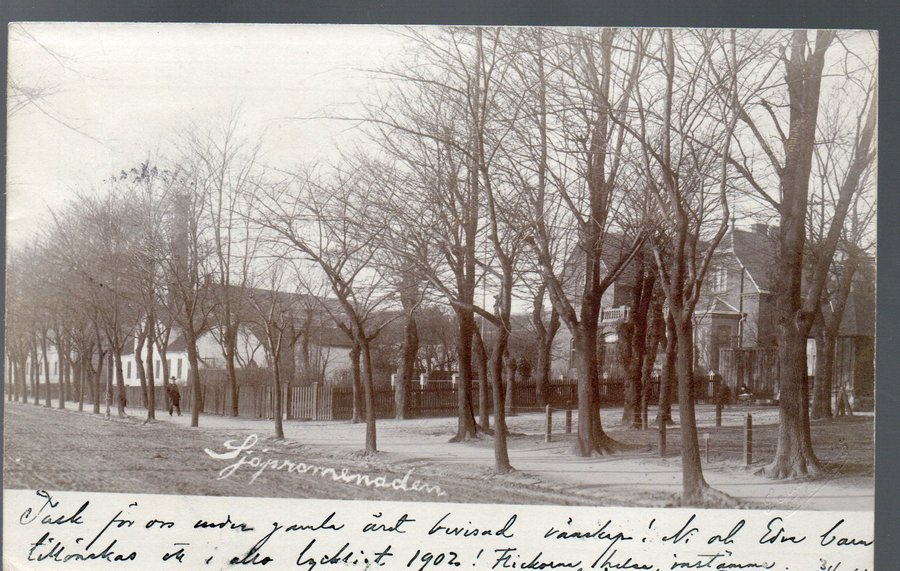 Sjöpromenaden
Tack för oss under gamla året bevisad vänskap! Ni och Edra barn
tillönskas ett i allo lyckligt 1902! Flickorna helsa, instämma. 31/12